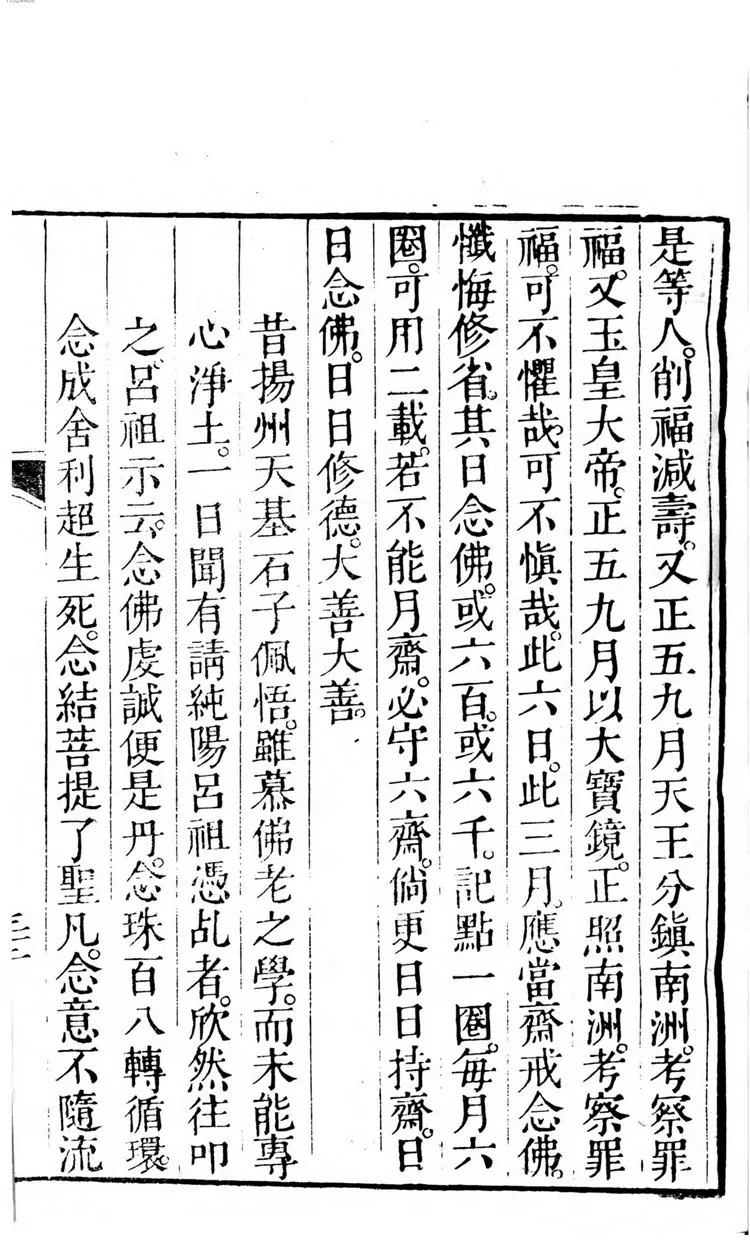 是等人。削福減壽。又正五九月天王分鎮南洲。考察罪
福。又玉皇大帝。正五九月以大寶鏡。正照南洲。考察罪
福。可不懼哉。可不慎哉。此六日。此三月。應當齋戒念佛。
懺悔修省。其日念佛。或六百。或六千。記點一圈。每月六
圈。可用二載。若不能月齋。必守六齋。倘更日日持齋。日
日念佛。日日修德。大善大善。
昔揚州天基石子佩悟。雖慕佛老之學。而未能專
心淨土。一日聞有請純陽呂祖憑乩者。欣然往叩
之。呂祖示云。念佛虔誠便是丹。念珠百八轉循環。
念成舍利超生死。念結菩提了聖凡。念意不隨流